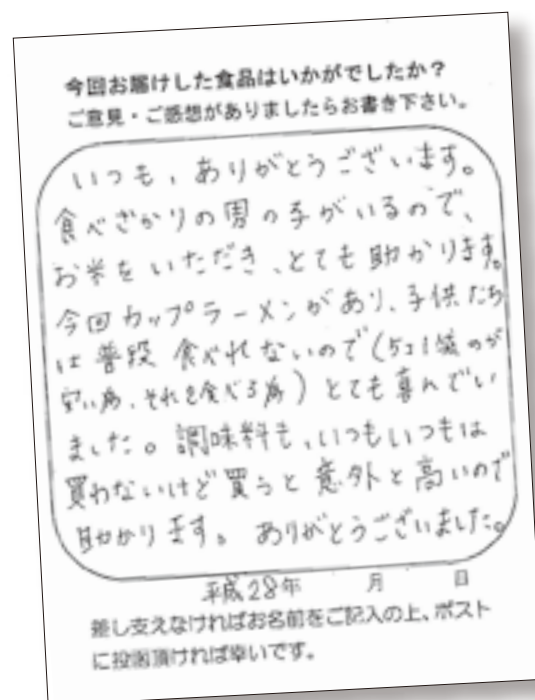 今回お届けした食品はいかがでしたか？
ご意見・ご感想がありましたらお書き下さい。
いつも、ありがとうございます。
食べざかりの男の子がいるので、
お米をいただき、とても助かります。
今回カップラーメンがあり、子供たち
は普段食べれないので(5コ1袋のが
安い為、それを食べる為)とても喜んでい
ました。調味料も、いつもいつもは
買わないけど買うと意外と高いので
助かります。ありがとうございました。
平成28年 月 日
差し支えなければお名前をご記入の上、ポスト
に投函頂ければ幸いです。